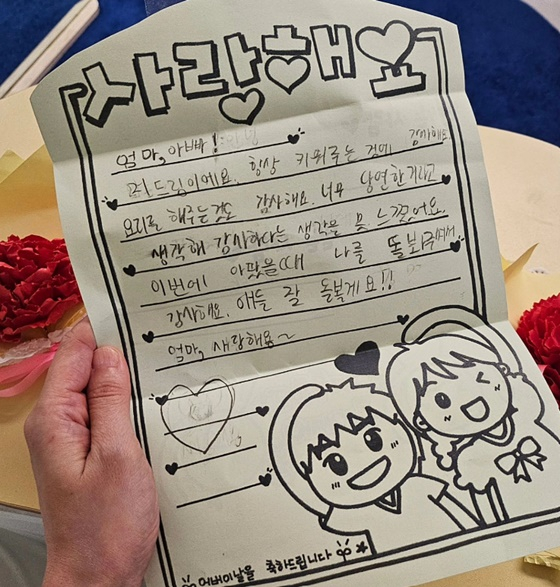 사랑해요
엄마, 아빠!
드림이에요. 항상 키워주는 것에 감사해요
요리로 해주는것도 감사해요. 너무 당연한거라고
생각해 감사하다는 생각을 못 느꼈어요.
이번에 아팠을때 나를 돌봐주셔서
감사해요. 애들 잘 돌볼게요!!
엄마, 사랑해용~
어버이날을 축하드립니다